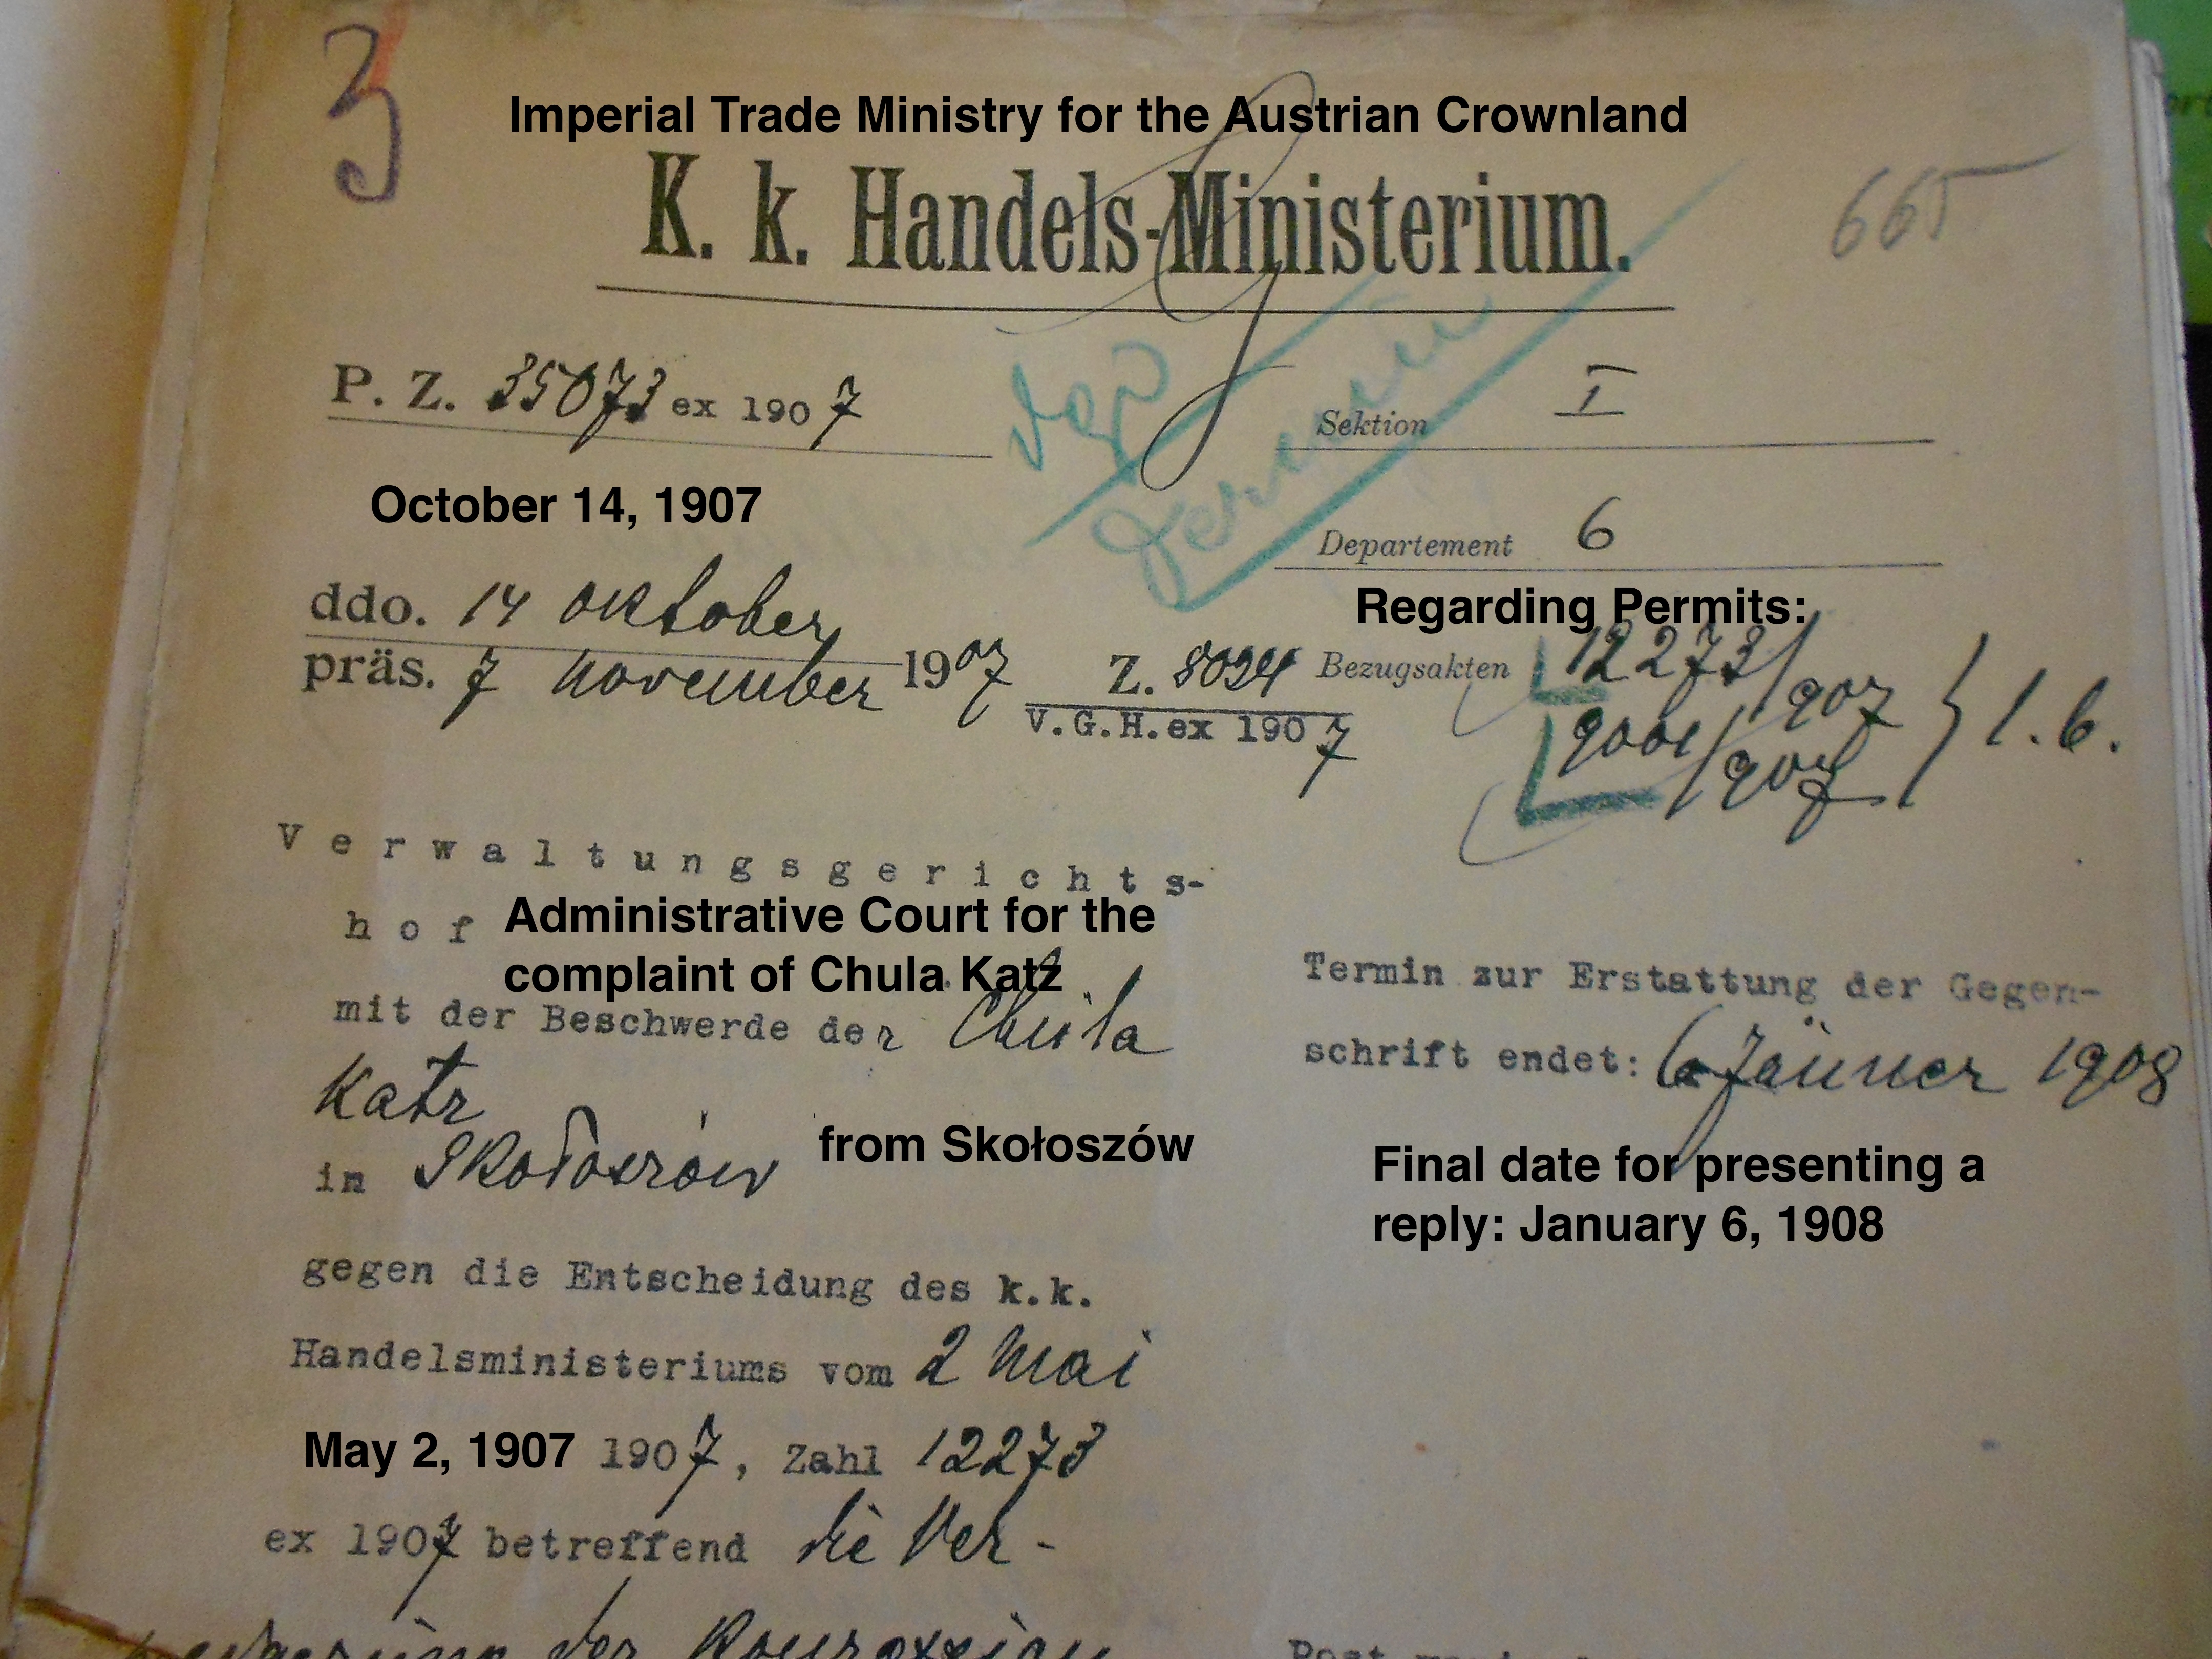 3
Imperial Trade Ministry for the Austrian Crownland
K. k. Handels-Ministerium.
665
P. Z. 35073 ex 1907
Sektion I
October 14, 1907
Departement 6
Termin
ddo. 14 Oktober
präs. 7 November 1907
Z. 8094
V.G.H. ex 1907
Regarding Permits:
Bezugsakten 12273/907
9001/907 } 1.6.
Verwaltungsgerichts-
hof
Administrative Court for the
complaint of Chula Katz
mit der Beschwerde der Chula
Katz
in Skołoszów
from Skołoszów
Termin zur Erstattung der Gegen-
schrift endet: 6 Jänner 1908
Final date for presenting a
reply: January 6, 1908
gegen die Entscheidung des k.k.
Handelsministeriums vom 2 Mai
May 2, 1907
1907, Zahl 12273
ex 1907 betreffend die Ver-
der